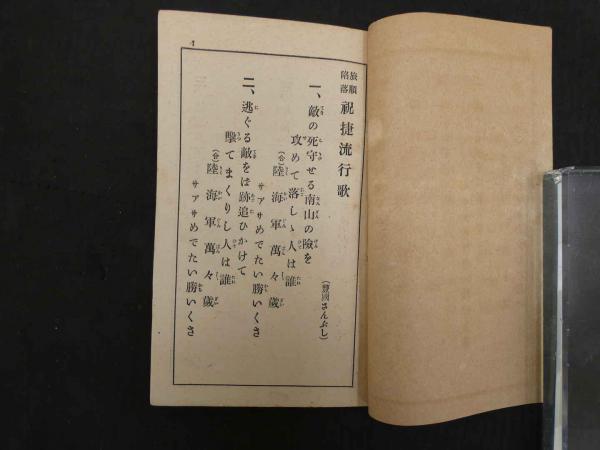 旅順陥落 祝捷流行歌
(豐國さんぶし)
一、敵の死守せる南山の險を
攻めて落しゝ人は誰
(合)陸海軍萬々歲
サアサめでたい勝いくさ
二、逃ぐる敵をは跡追ひかけて
擊てまくりし人は誰
(合)陸海軍萬々歲
サアサめでたい勝いくさ